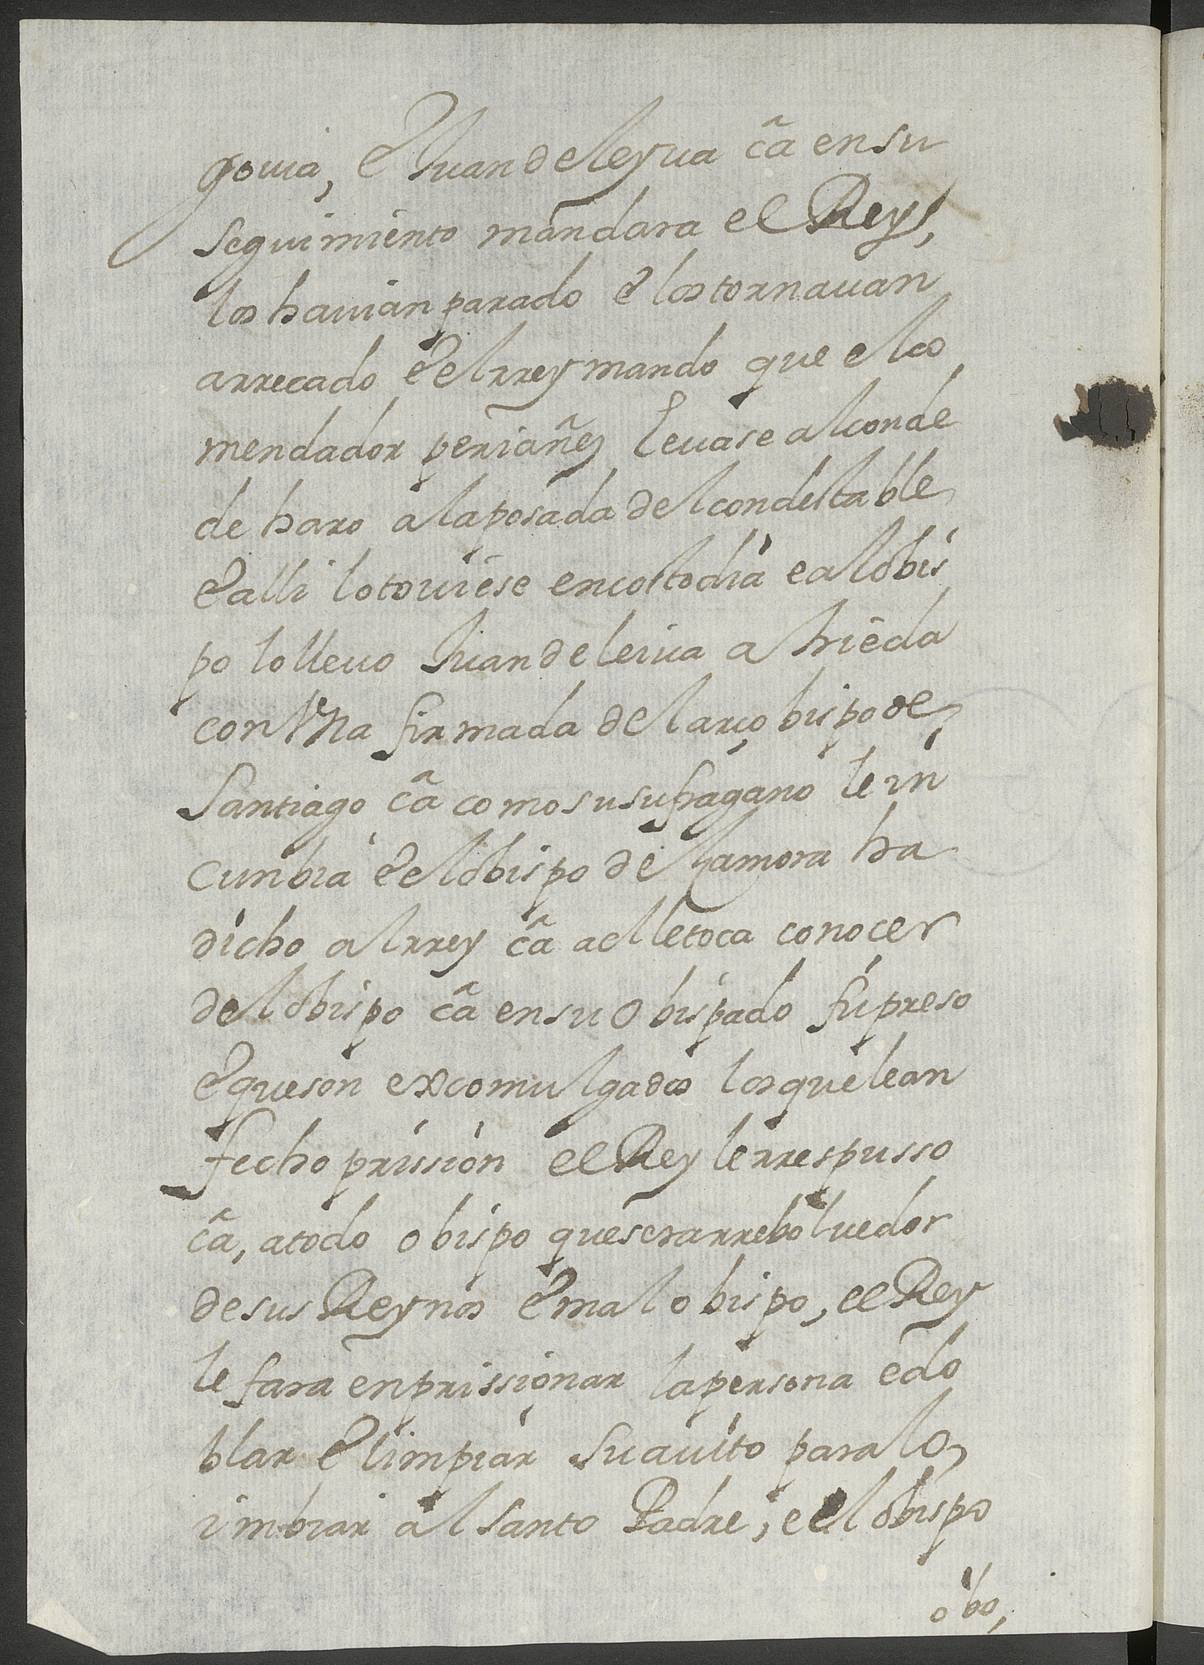 govia, e Iuan de leyva cã en su
seguimiento mandara el Rey,
los havian parado e los tornavan
arrecado e el rrey mando que el co
mendador periañes levase al conde
de haro a la posada del condestable
e alli lo toviese en costodia e al obis
po lo llevo Iuan de leiva a hiēda
con  firmada del arçobispo de
Santiago cã como su sufragano le in
cunbia e el obispo de Çamora ha
dicho al rrey cã a el le toca conocer
del obispo cã en su obispado fu preso
e que son excomulgados los que le an
fecho prission el Rey le rrespusso
cã, a todo obispo que sera rrebolvedor
de sus Reynos e mal obispo, el Rey
le fara enprissionar la persona e do
blar e limpiar su avito para lo
imbiar al Santo Padre, e el obispo
obo,